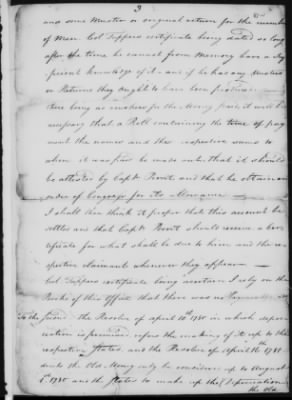 3
and some Muster or original return for the number
of Men Col Tuppers certificate being dated so long
after the time he cannot from Memory have a
present knowledge of it and if he has any Musters
or Returns they ought to have been produced
there being no vouchers for the Money paid, it will be
necessary that a Roll containing the time of pay
ment the names and the respective sums to
whom it was paid be made out that it should
be attested by Capt and that he obtain an
order of Congress for its Allowance —
I shall then think it proper that this account be
settled and that Capt should receive a Cer
tificate for what shall be due to him and the re
spective claimants whenever they appear —
Col Tuppers certificate being I rely on the
Books of this Office that there was no
To the the Resolve of april 10th 1780 in which depre
ciation is promised refers the making of it up to the
respective States, and the Resolve of April 16th 1781
the Old Money only be considered up to August
1st 1780 and the States to make up the Depreciation
the Old